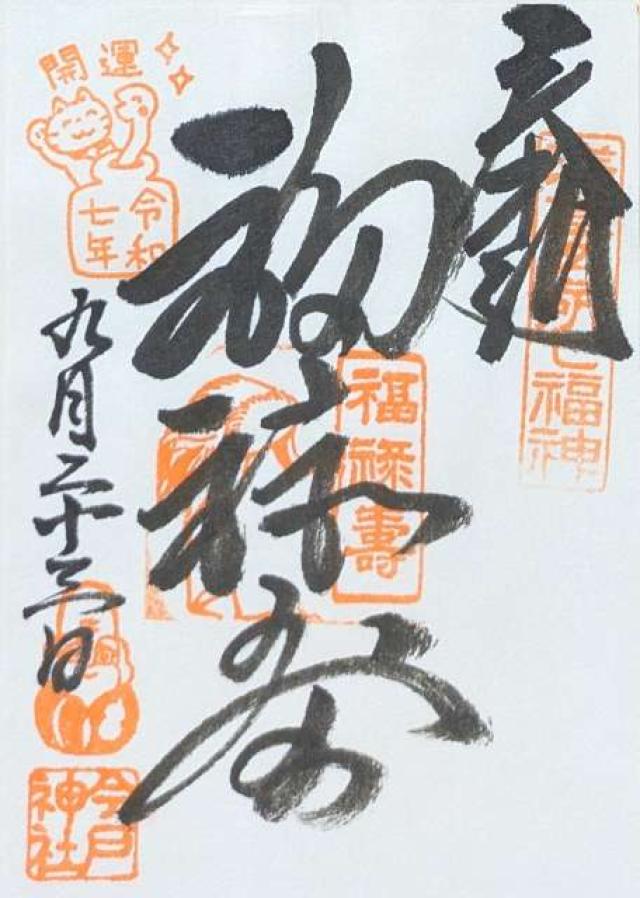 奉拝
七福神
福禄寿
福禄壽
開運
令和
七年
九月二十三日
今戸
神社